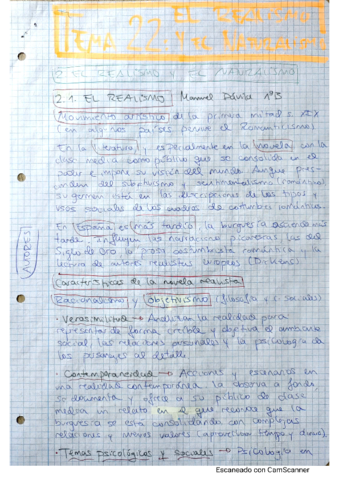 EL REALISMO
TEMA 22 Y EL NATURALISMO
2. EL REALISMO Y EL NATURALISMO
2.1. EL REALISMO Manuel Dávila 1ºB
Movimiento artístico de la primera mitad s. XIX
(en algunos países pervive el Romanticismo)
En la literatura, y especialmente en la novela con la
clase media como público que se consolida en el
poder e impone su visión del mundo. Aunque pres-
cinden del subjetivismo y sentimentalismo romántico,
su germen está en las descripciones de los tipos y
usos sociales de los cuadros de costumbres románticos.
En España es más tardío, la burguesía asciende más
tarde. Influyen las narraciones picarescas del
Siglo de Oro, la prosa costumbrista romántica y la
lectura de autores realistas europeos (Dickens).
AUTORES
Características de la novela realista
Racionalismo y objetivismo (filosofía y c. sociales)
· Verosimilitud → Analizan la realidad para
representar de forma creíble y objetiva el ambiente
social, las relaciones personales y la psicología de
los personajes al detalle.
· Contemporaneidad → Acciones y escenarios en
una realidad contemporánea, la observa a fondo,
se documenta y ofrece a su público de clase
media un relato en el que reconoce que la
burguesía se está consolidando con complejas
relaciones y nuevos valores
· Temas psicológicos y sociales → Psicología en
Escaneado con CamScanner